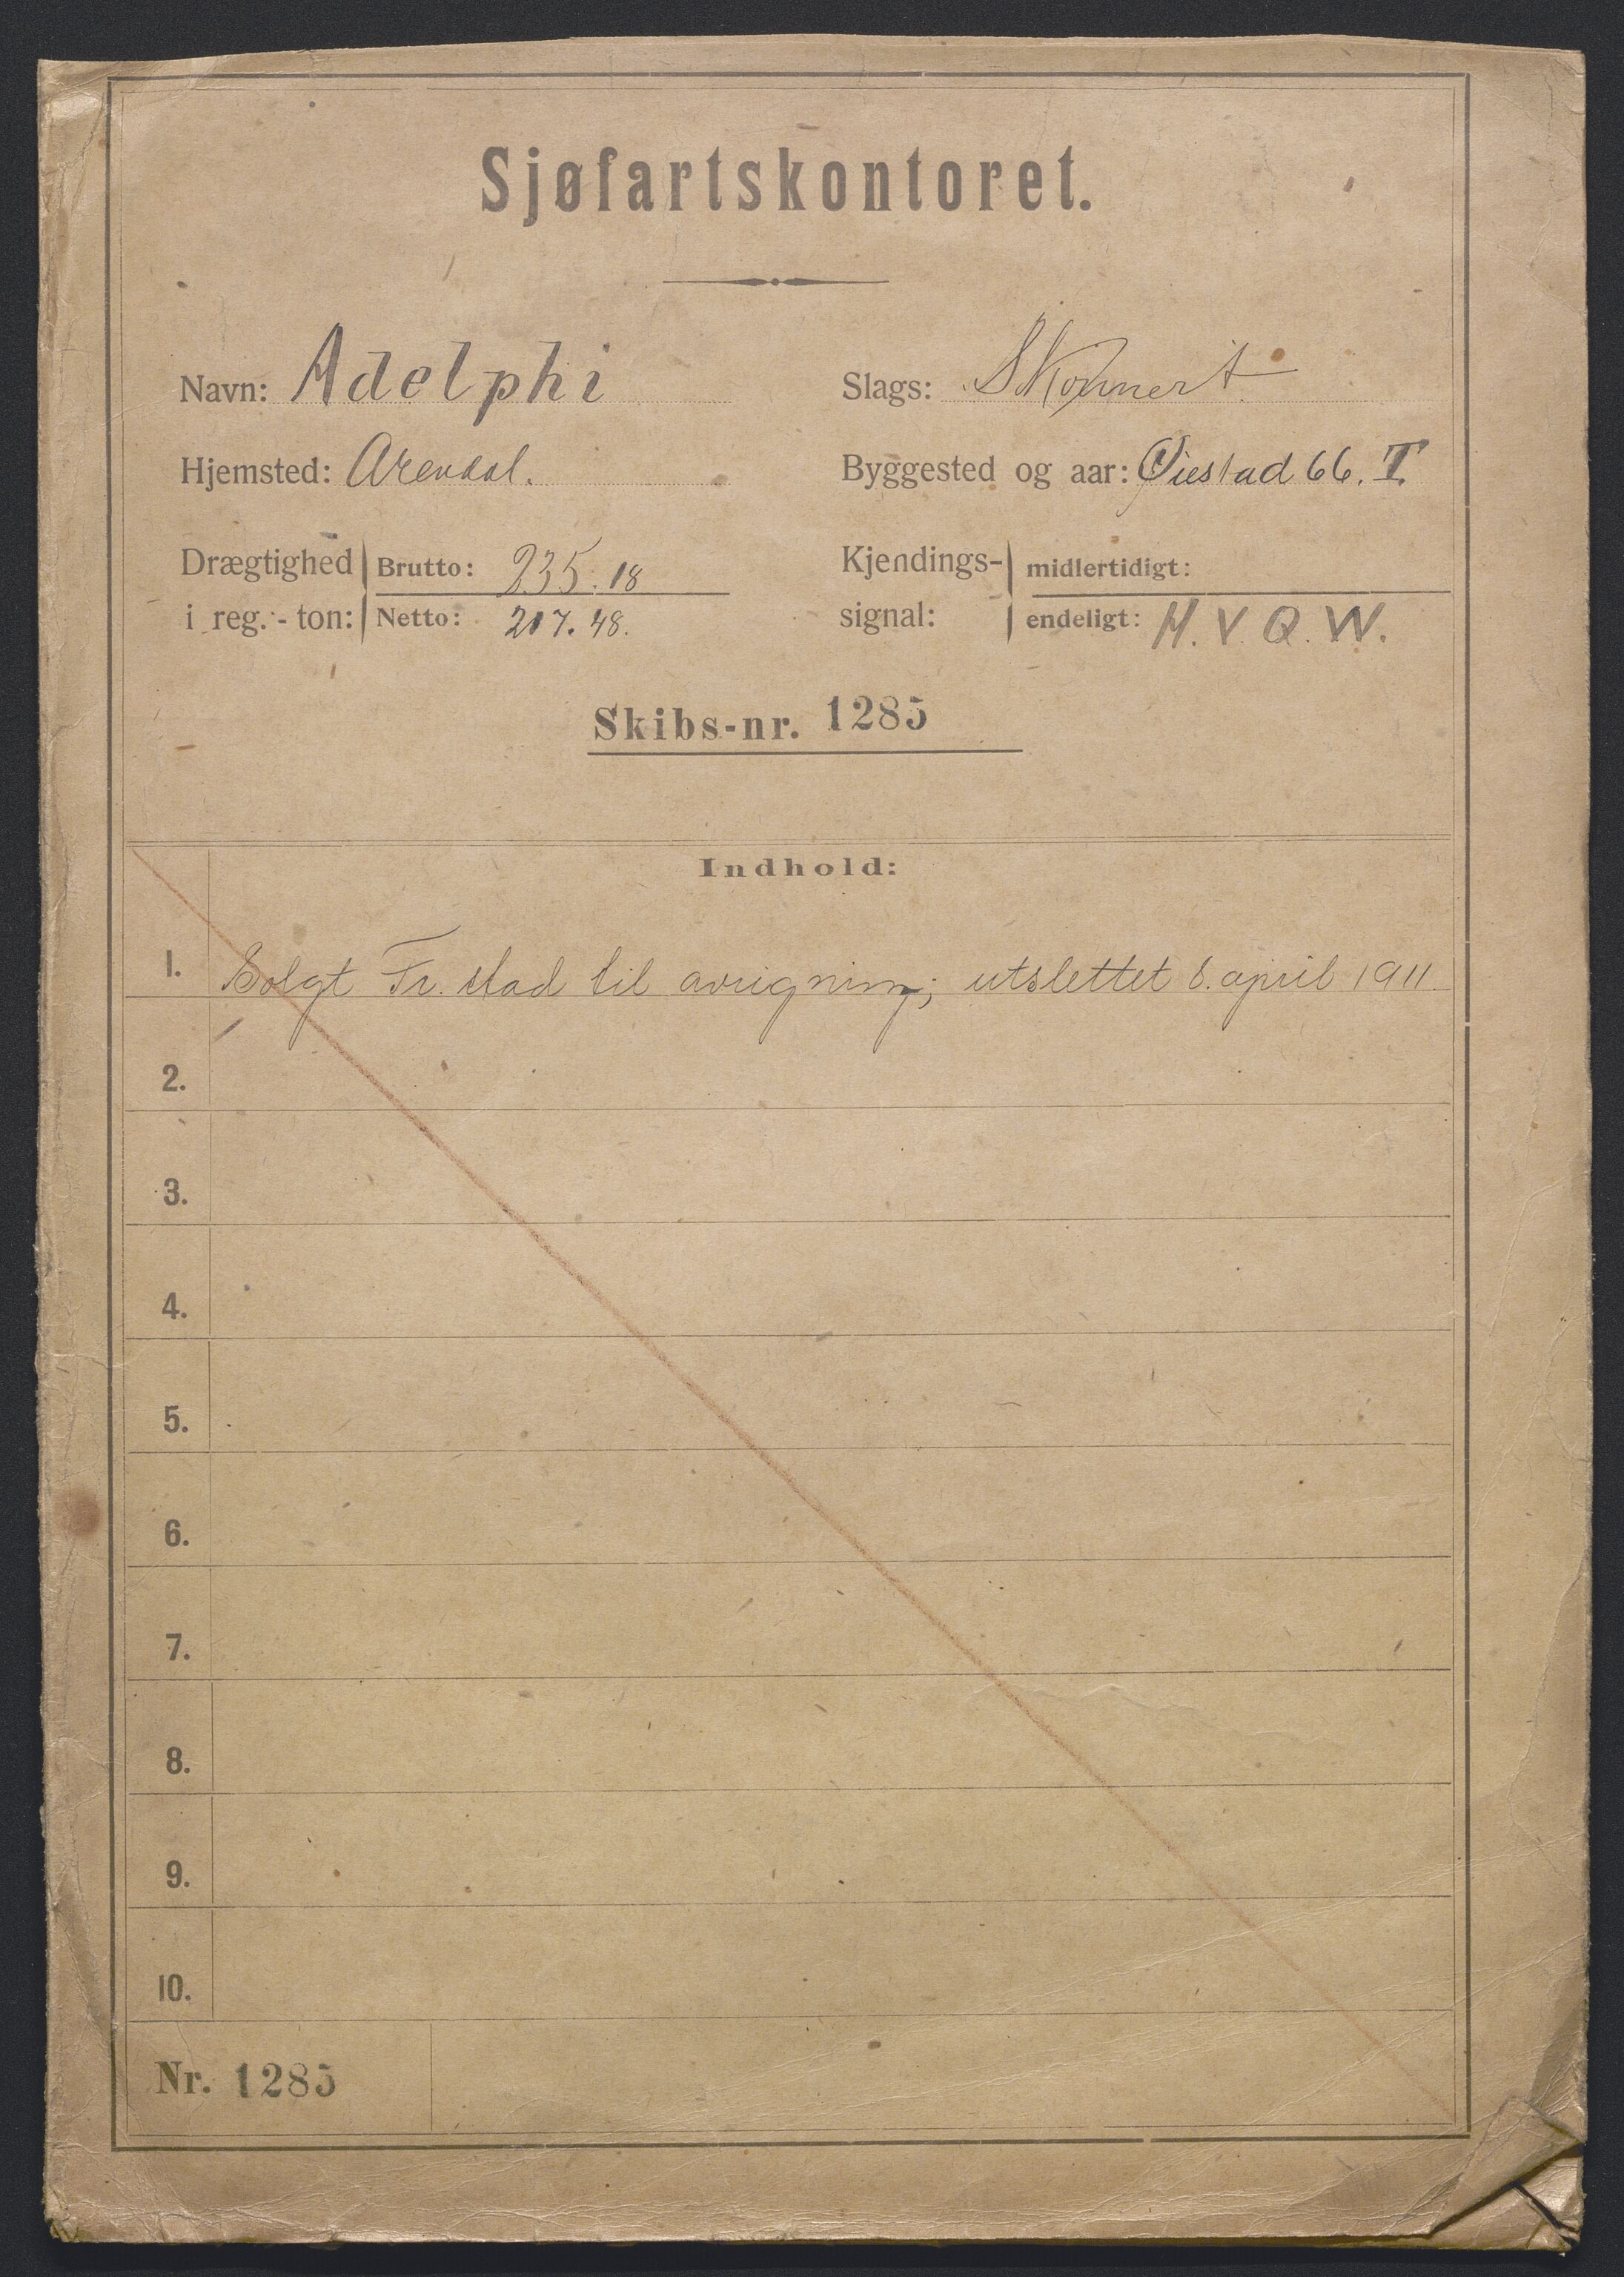 Sjøfartskontoret.
Navn: Adelphi
Slags: Skonnert.
Hjemsted: Arendal.
Byggested og aar: Øiestad 66. T.
Drægtighed i reg.-ton: Brutto: 235.18
Netto: 217.48.
Kjendings-signal: midlertidigt:
endeligt: H.V.Q.W.
Skibs-nr. 1285
Indhold:
1. Solgt Fr.stad til avrigning; utslettet 6. april 1911.
2.
3.
4.
5.
6.
7.
8.
9.
10.
Nr. 1285